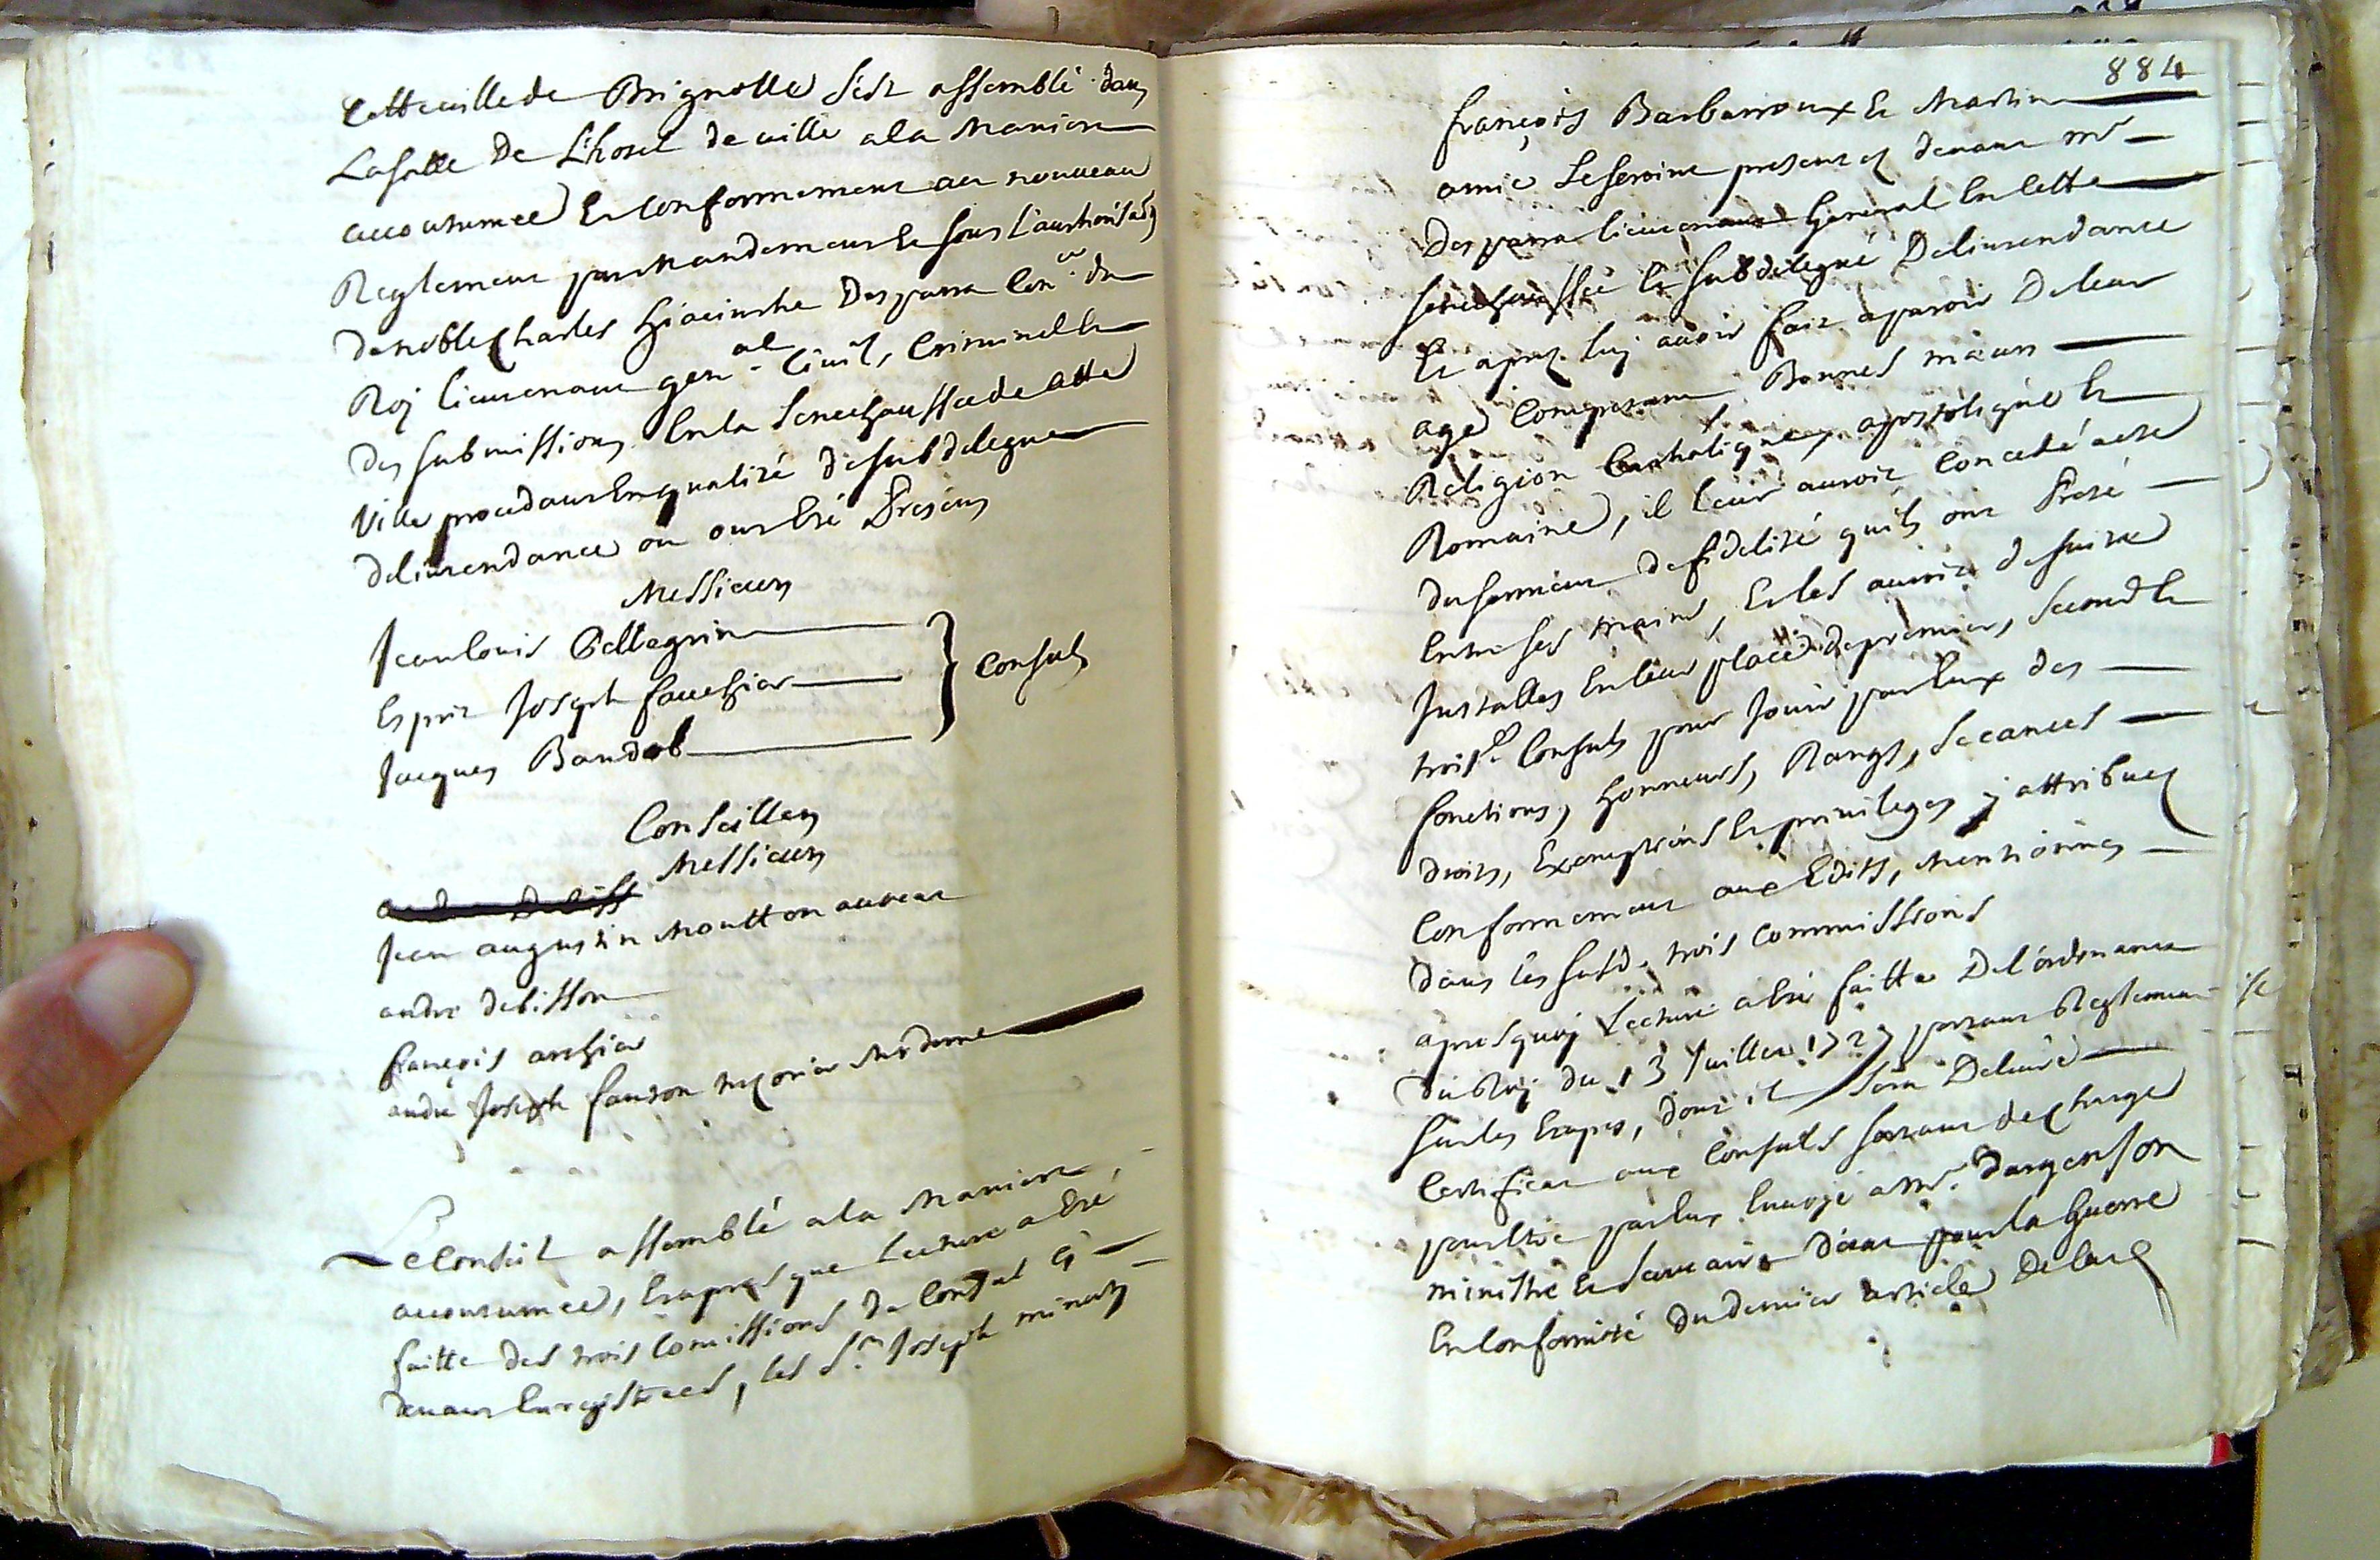 cette ville de Brignolle s'est assemblé dans
La salle De L'hotel de ville a la maniere
accoutumée Et conformement au nouveau
Reglement par mandement et sous L'authorisaõn
de noble Charles hiacinthe Desparra Con.er du
Roj Lieutenant gen.al Civil, Criminel et
Des submissions En la Senechaussée de cette
Ville procedant En qualité de subdelegué
de l'intendance ou ont Esté Presens
Messieurs
Jean Louis Pellegrin
Esprit Joseph fauchier
Jacques Baudol
} Consuls
Conseillers
Messieurs
Jean augustin Moutton avocat
andré debisson
françois archier
andre Joseph fanton
Le Conseil assemblé a la Maniere
accoutumée, Et apres que Lecture a Eté
faitte des trois Comissions de Consul cj
devant Enregistrées, les S.rs Joseph minuty
884
françois Barbarroux Et Martin
amic Se seroint presentes devant mr
Desparra lieutenant General En cette
senechaussée Et subdelegué De l'intendance
Et apres luj avoir fait aparoir De leur
age Competant Bonnes mœurs
Religion Catholique, apostolique Et
Romaine, il leur auroit Concedé acte
du serment de fidelité quils ont Preté
Entre ses mains, Et les auroit de suitte
Installes En leur place de premier, second Et
trois.e Consuls pour Jouir par Eux des
fonctions, honneurs, Rangs, Seances
droits, Exemptions Et privileges y attribues
Conformement aux Edits, Mentionnes
dans les susd. trois Commissions
apres quoj Lecture a Esté faitte De l'ordonance
du Roj du 13 Juillet 1727 portant Reglement
sur les Etapes, dont il sera Delivré
Certificat aux Consuls sortant de charge
pour Etre par Eux Envoyé a Mr. Dargenson
ministre Et secretaire D'etat pour la Guerre
En Conformité du dernier article De lad